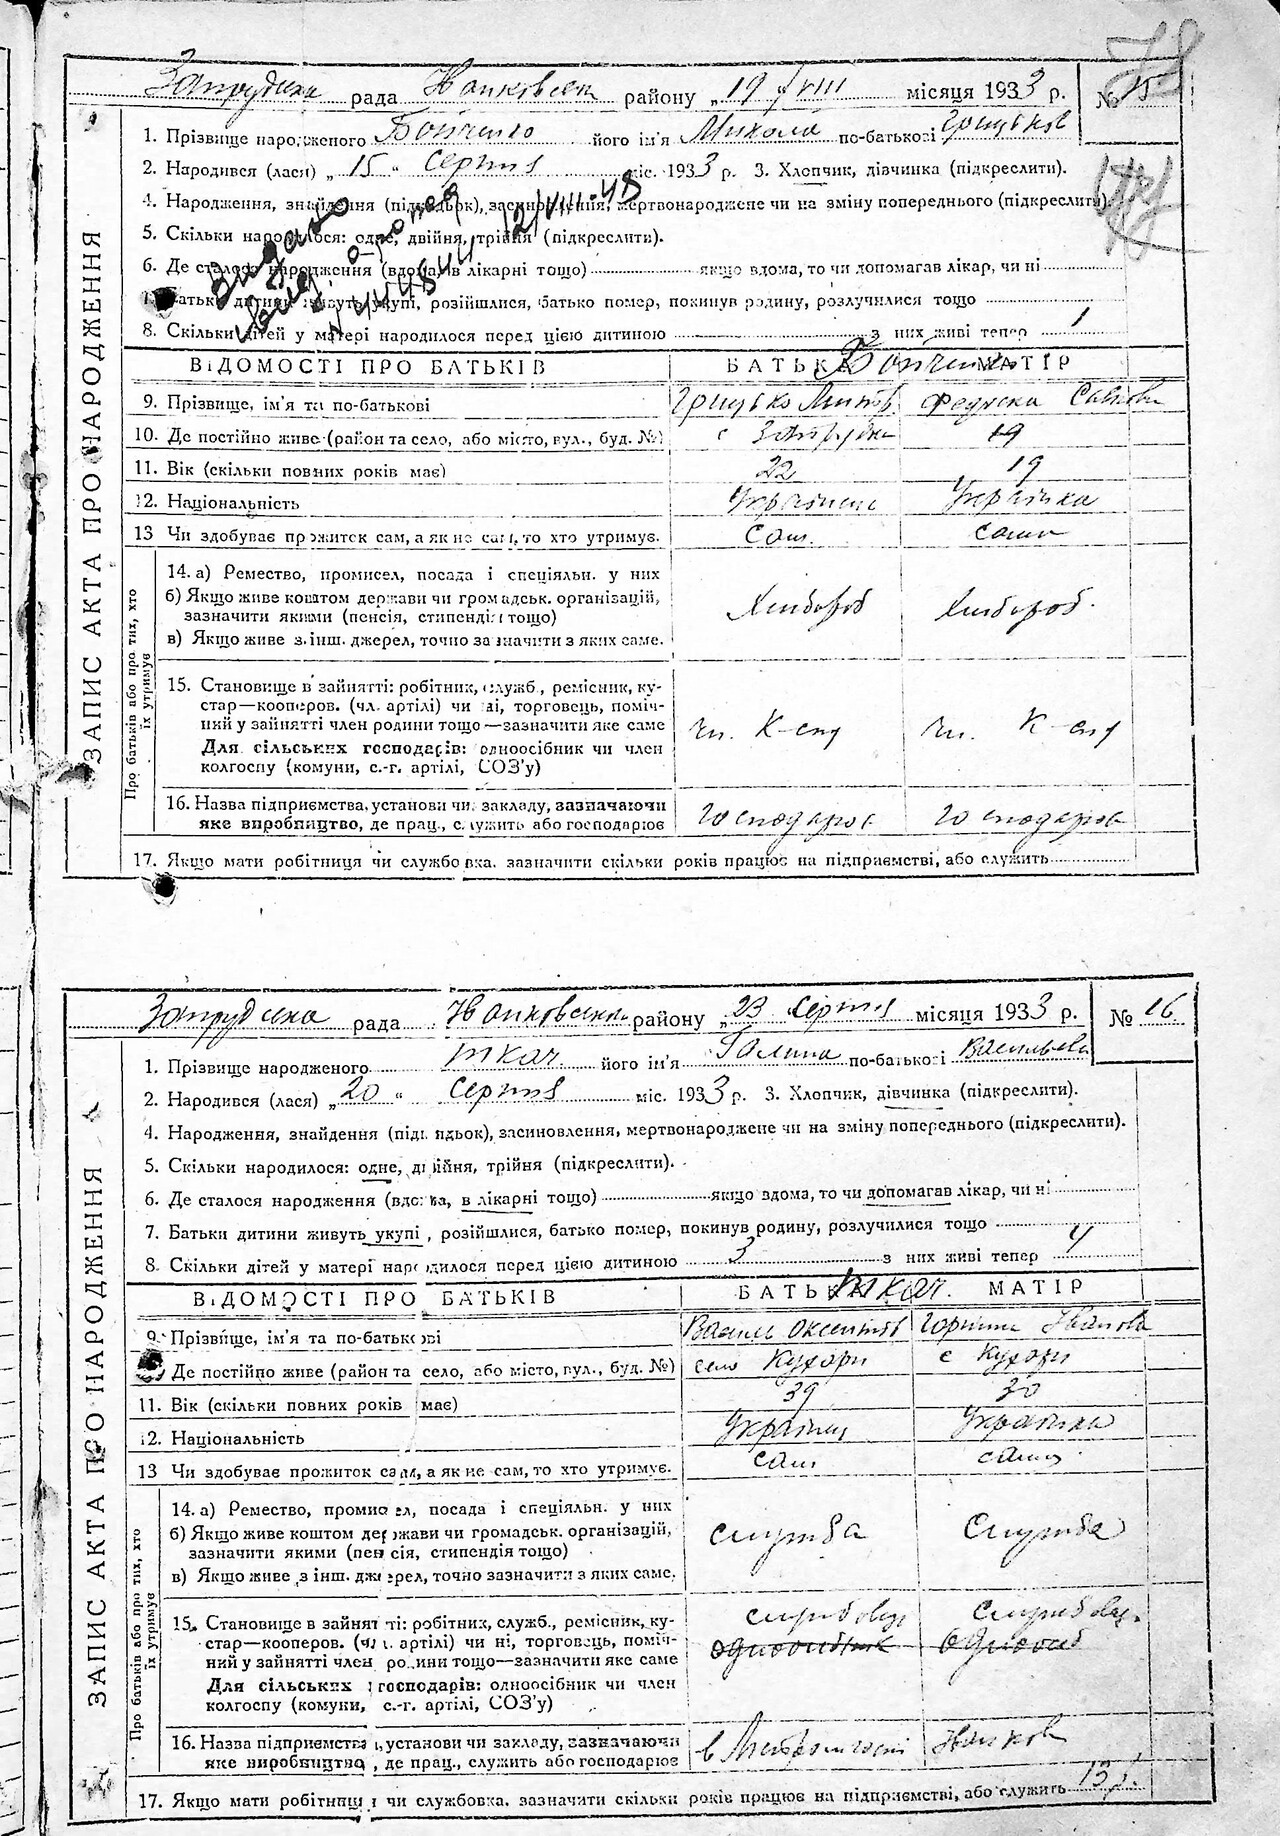 Запрудська рада Іванковськ району „19 / VIII місяця 1933 р. № 15
1. Прізвище народженого Бойченко його ім'я Микола по-батькові Грицьков
2. Народився (лася) „15 " Серпня міс. 1933 р. 3. Хлопчик, дівчинка (підкреслити).
4. Народження, знайдення (підкидьок), засиновлення, мертвонароджене чи на зміну попереднього (підкреслити).
5. Скільки народилося: одне, двійня, трійня (підкреслити).
6. Де сталося народження (вдома, в лікарні тощо) якщо вдома, то чи допомагав лікар, чи ні
7. Батьки дитини живуть укупі, розійшлися, батько помер, покинув родину, розлучилися тощо
8. Скільки дітей у матері народилося перед цією дитиною з них живі тепер 1
Видано
12/VIII-48
ВІДОМОСТІ ПРО БАТЬКІВ БАТЬКА МАТІР
Бойченко
9. Прізвище, ім'я та по-батькові Грицько
10. Де постійно живе (район та село, або місто, вул., буд. №) с 19
11. Вік (скільки повних років має) 22 19
12. Національність Українець Українка
13 Чи здобуває прожиток сам, а як не сам, то хто утримує. Сам. сама
14. а) Ремество, промисел, посада і спеціяльн. у них
б) Якщо живе коштом держави чи громадськ. організацій,
зазначити якими (пенсія, стипендія тощо) Хлібороб Хлібороб.
в) Якщо живе з інш. джерел, точно зазначити з яких саме.
15. Становище в зайнятті: робітник, служб., ремісник, ку-
стар—кооперов. (чл. артілі) чи ні, торговець, поміч-
ний у зайнятті член родини тощо—зазначити яке саме чл. К-спу чл. К-спу
Для сільських господарів: одноосібник чи член
колгоспу (комуни, с.-г. артілі, СОЗ'у)
16. Назва підприємства, установи чи закладу, зазначаючи
яке виробництво, де прац., служить або господарює
17. Якщо мати робітниця чи службовка, зазначити скільки років працює на підприємстві, або служить
ЗАПИС АКТА ПРО НАРОДЖЕННЯ
Про батьків або про тих, хто їх утримує
Запрудська рада Іванковськ району „23 серпня місяця 1933 р. № 16.
1. Прізвище народженого Ткач його ім'я Галина по-батькові Васильєва
2. Народився (лася) „20 " Серпня міс. 1933 р. 3. Хлопчик, дівчинка (підкреслити).
4. Народження, знайдення (підкидьок), засиновлення, мертвонароджене чи на зміну попереднього (підкреслити).
5. Скільки народилося: одне, двійня, трійня (підкреслити).
6. Де сталося народження (вдома, в лікарні тощо) якщо вдома, то чи допомагав лікар, чи ні
7. Батьки дитини живуть укупі, розійшлися, батько помер, покинув родину, розлучилися тощо
8. Скільки дітей у матері народилося перед цією дитиною 3 з них живі тепер 4
ВІДОМОСТІ ПРО БАТЬКІВ БАТЬКА МАТІР
Ткач.
9. Прізвище, ім'я та по-батькові Василь Оксентів Горпина Іванова
Де постійно живе (район та село, або місто, вул., буд. №) село Кухари с Кухари
11. Вік (скільки повних років має) 39 30
12. Національність Українец Українка
13 Чи здобуває прожиток сам, а як не сам, то хто утримує. сам сама
14. а) Ремество, промисел, посада і спеціяльн. у них
б) Якщо живе коштом держави чи громадськ. організацій, служба Служба
зазначити якими (пенсія, стипендія тощо)
в) Якщо живе з інш. джерел, точно зазначити з яких саме.
15. Становище в зайнятті: робітник, служб., ремісник, ку- службовец службовец.
стар—кооперов. (чл. артілі) чи ні, торговець, поміч- одноосібник одноосіб
ний у зайнятті член родини тощо—зазначити яке саме
Для сільських господарів: одноосібник чи член
колгоспу (комуни, с.-г. артілі, СОЗ'у)
16. Назва підприємства, установи чи закладу, зазначаючи
яке виробництво, де прац., служить або господарює в Іванков
17. Якщо мати робітниця чи службовка, зазначити скільки років працює на підприємстві, або служить 13 р.
ЗАПИС АКТА ПРО НАРОДЖЕННЯ
Про батьків або про тих, хто їх утримує